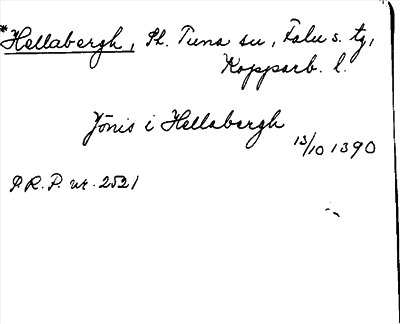 *Hellabergh, St. Tuna sn, Falu s. tg,
Kopparb. l.
Jönis i Hellabergh
13/10 1390
P.R.P. nr. 2521